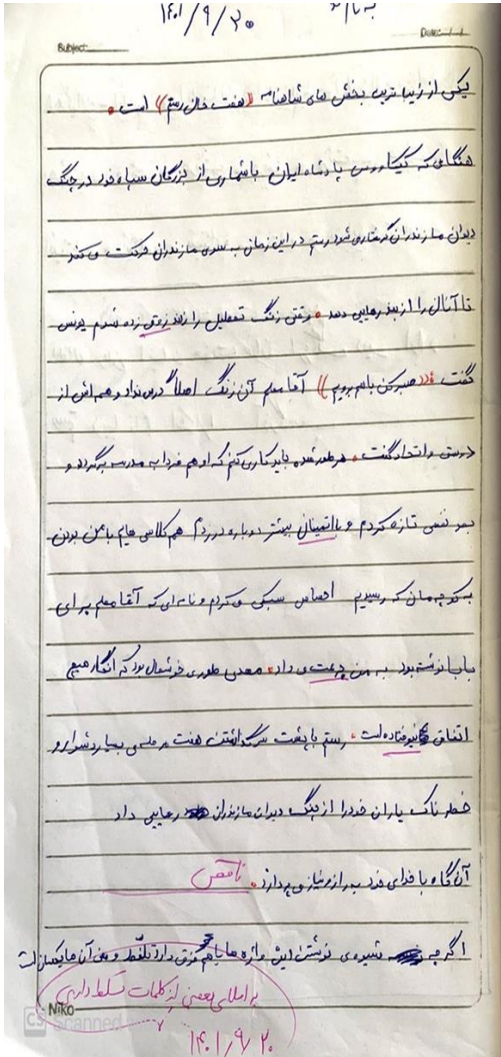 به نام
۱۴۰۱/۹/۲۰
Date: / /
Subject:
یکی از زیبا ترین بخش های شاهنامه ((هفت خان رستم)) است.
هنگامی که کیکاووس پادشاه ایران با شماری از بزرگان سپاه خود در جنگ
دیوان مازندران گرفتار می شود رستم در این زمان به سوی مازندران حرکت می کند
تا آنان را از بند رهایی دهد. وقتی زنگ تعطیل را زدند زده شدم یونس
گفت :((صبر کن باهم برویم)) آقا معلم آن زنگ اصلاً درس نداد و همه اش از
دوستی و اتحاد گفت. هر طور شده باید کاری کنم که او هم فردا به مدرسه برگردد و
بعد نفسی تازه کردم و با اتمینان بیشتر دوباره در زدم هم کلاسی هایم با من بودن
به کوچه مان که رسیدیم احساس سبکی می کردم و نامه ای که آقا معلم برای
بابا نوشته بود به من می داد. مهدی طوری خوشحال بود که انگار هیچ
اتفاقی نیوفتاده است. رستم با پشت سر گذاشتن هفت مرحله ی بسیار دشوار و
خطرناک یاران خود را از چنگ دیوان مازندران رهایی داد
آن گاه با خدای خود به راز و نیاز می پردازد. ناقص
اگر چه شیوه ی نوشتن این واژه ها باهم فرق دارد تلفظ و معنی آن ها یکسان است
به املای بعضی از کلمات تسلط داری
Niko
CS Scanned
۱۴۰۱/۹/۲۰